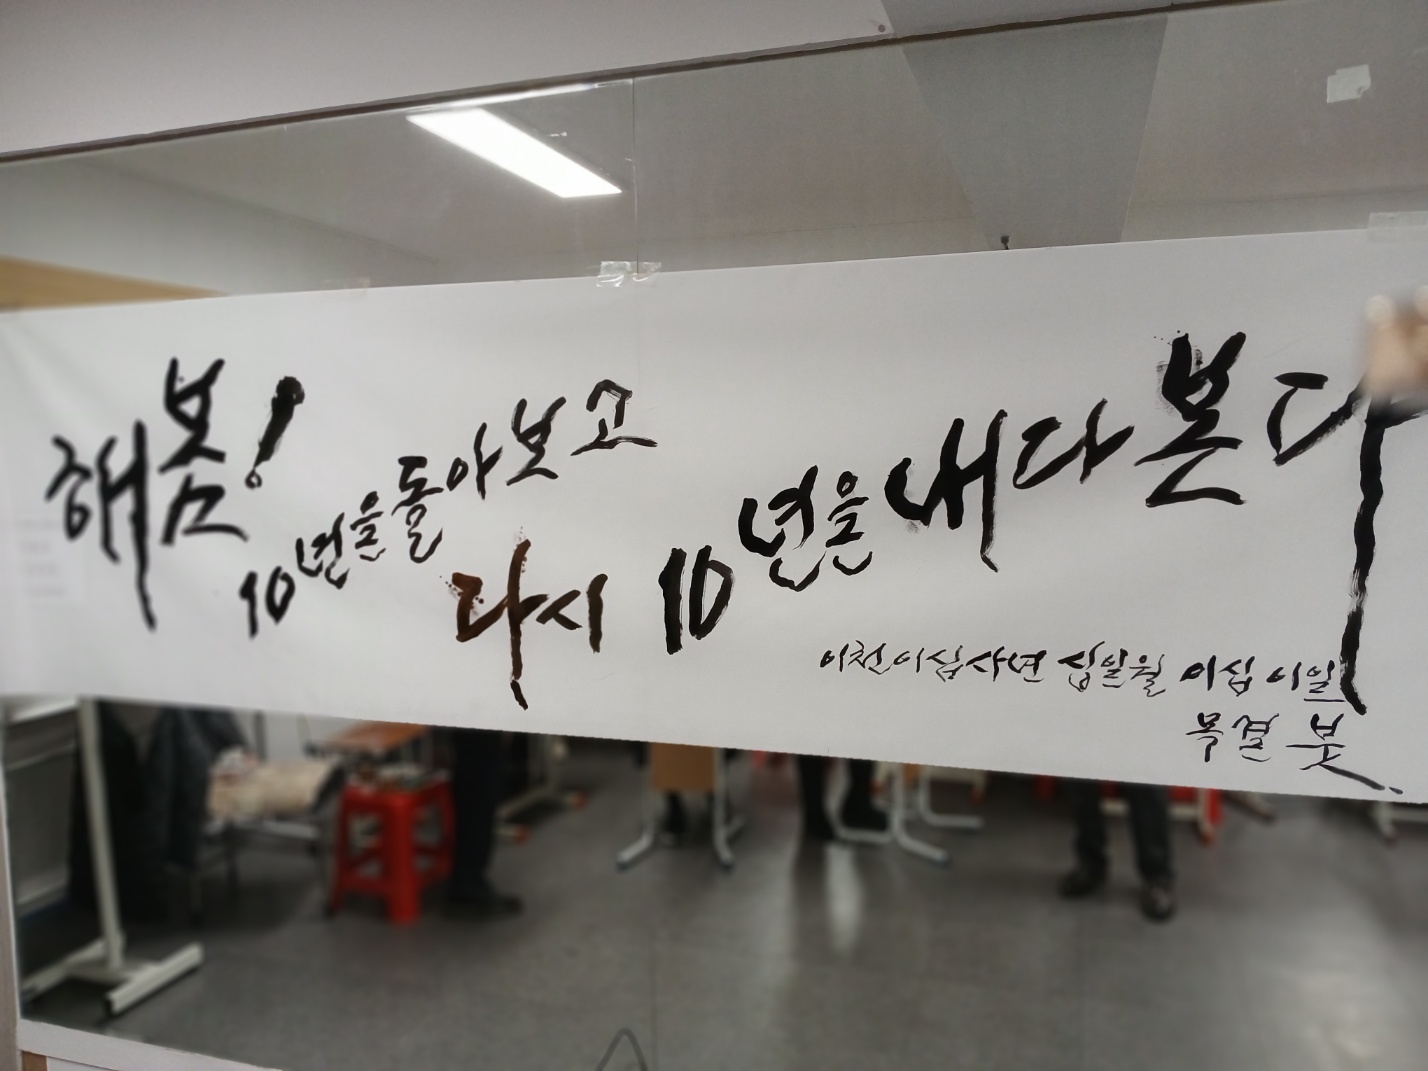 해봄!
10년을 돌아보고
다시 10년을 내다본다
이천이십사년 십일월 이십이일
목결 붓